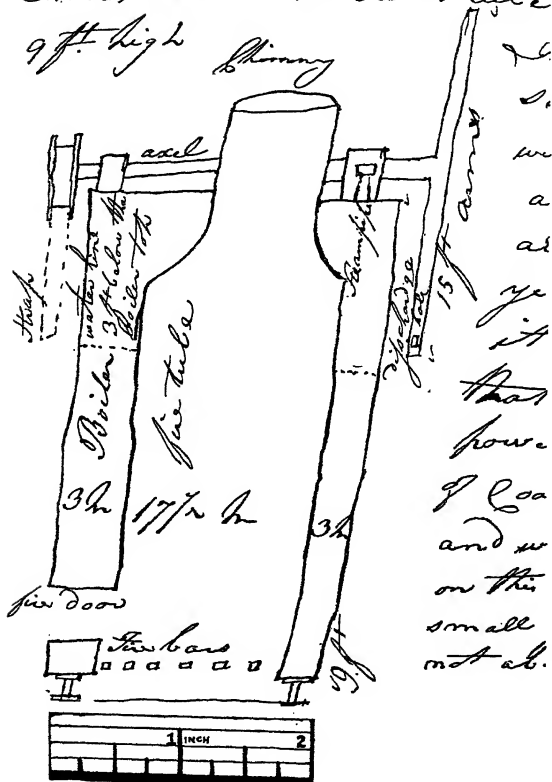 9 ft. high
Chimny
axel
strap
water line
3 ft below the
Boiler top
Boiler
fire tube
steam pipe
discharge
hole
15 ft arms
3 h
17½ h
3 h
fire door
Fire bars
9 ft
we
a
ye
it
that
powe
of Coa
and w
on this
small
not ab.
1 INCH 2